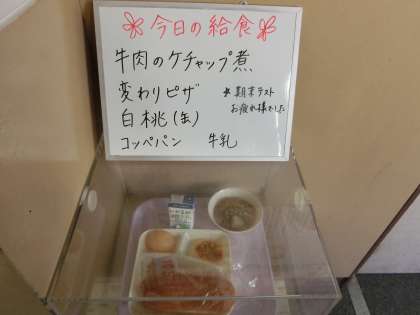 今日の給食
牛肉のケチャップ煮
変わりピザ
白桃(缶)
コッペパン 牛乳
* 期末テスト
お疲れ様でした